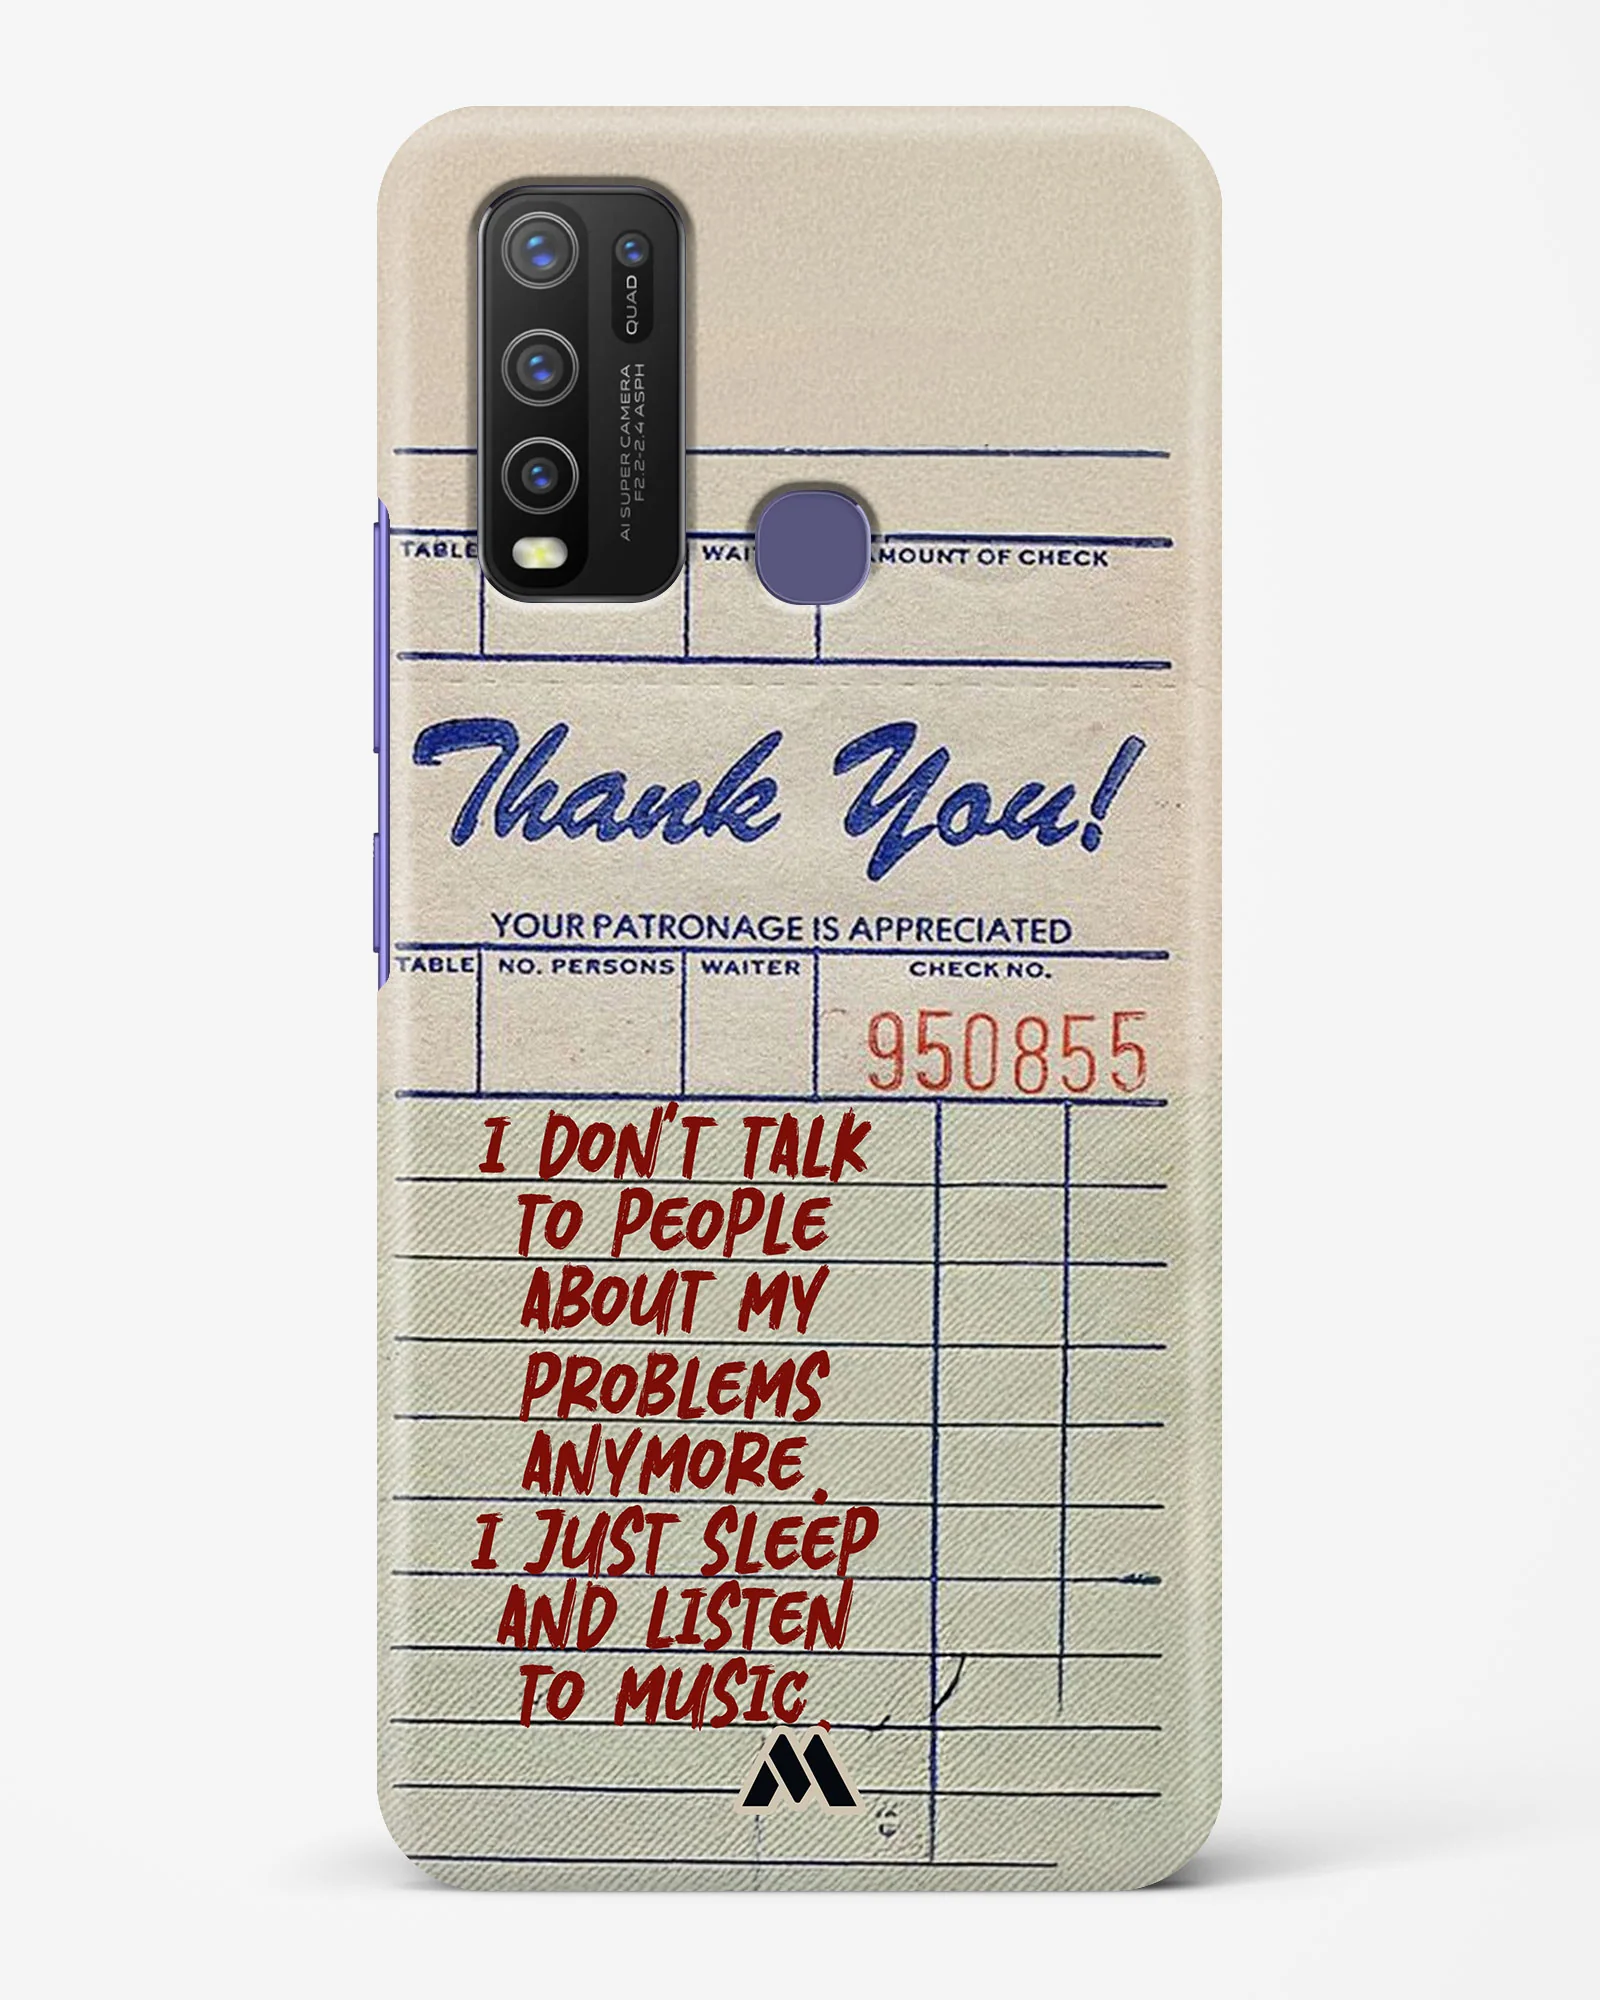 QUAD
AI SUPER CAMERA
F2.2-2.4 ASPH
TABLE WAI MOUNT OF CHECK
Thank You!
YOUR PATRONAGE IS APPRECIATED
TABLE NO. PERSONS WAITER CHECK NO.
950855
I DON'T TALK
TO PEOPLE
ABOUT MY
PROBLEMS
ANYMORE.
I JUST SLEEP
AND LISTEN
TO MUSIC.